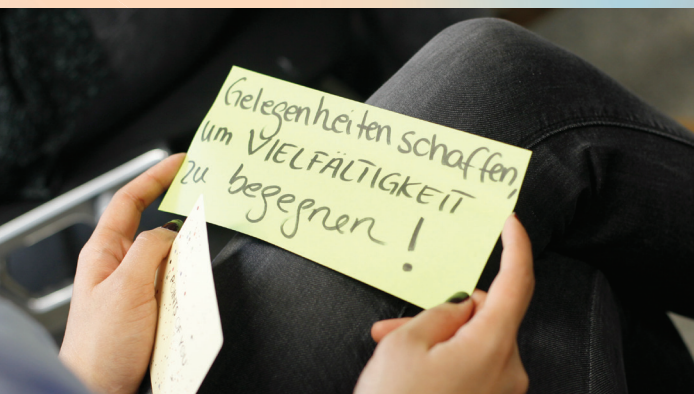 Gelegenheiten schaffen,
um VIELFÄLTIGKEIT
zu begegnen!